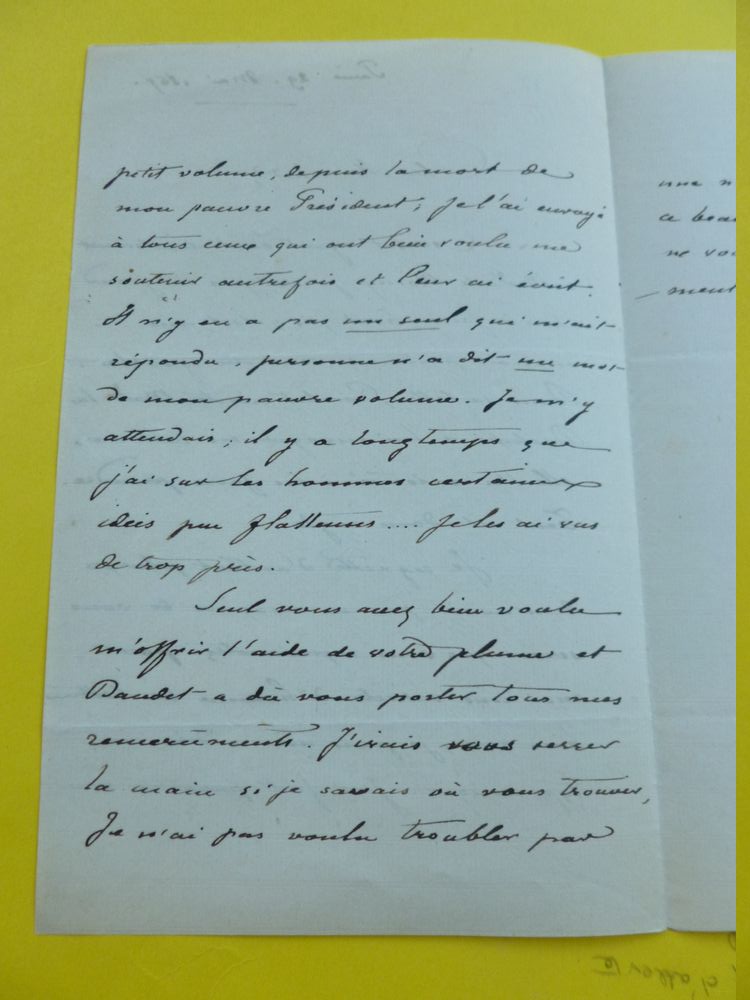 petit volume, depuis la mort de
mon pauvre Président ; je l'ai envoyé
à tous ceux qui ont bien voulu me
soutenir autrefois et leur ai écrit.
Il n'y en a pas un seul qui m'ait
répondu, personne n'a dit un mot
de mon pauvre volume. Je m'y
attendais ; il y a longtemps que
j'ai sur les hommes certaines
idées peu flatteuses .... Je les ai vus
de trop près.
Seul vous avez bien voulu
m'offrir l'aide de votre plume et
Daudet a dû vous porter tous mes
remerciments. J'irais vous serrer
la main si je savais où vous trouver,
Je n'ai pas voulu troubler par
une
a beau
ne
ment